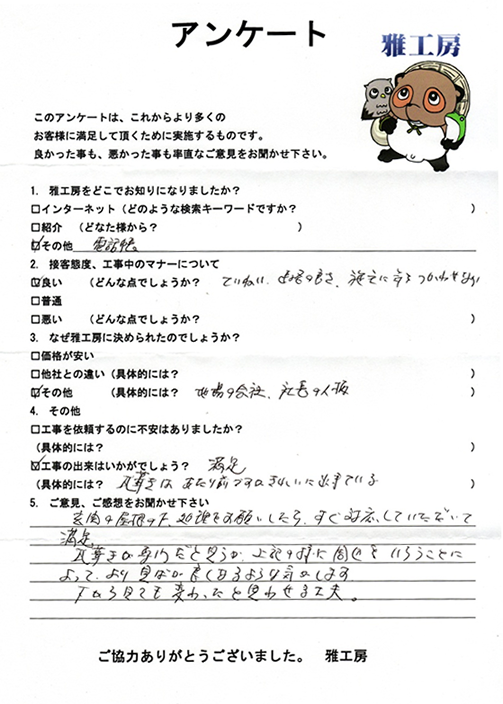 アンケート
雅工房
このアンケートは、これからより多くの
お客様に満足して頂くために実施するものです。
良かった事も、悪かった事も率直なご意見をお聞かせ下さい。
1. 雅工房をどこでお知りになりましたか？
□インターネット（どのような検索キーワードですか？ ）
□紹介 （どなた様から？ ）
☑その他 電話帳
2. 接客態度、工事中のマナーについて
☑良い （どんな点でしょうか？ ていねい、 ）
□普通
□悪い （どんな点でしょうか？ ）
3. なぜ雅工房に決められたのでしょうか？
□価格が安い
□他社との違い（具体的には？ ）
☑その他 （具体的には？ 地場の会社、社長の人柄 ）
4. その他
□工事を依頼するのに不安はありましたか？
（具体的には？ ）
☑工事の出来はいかがでしょう？ 満足
（具体的には？ 瓦葺きは あたり前ですがきれいに出来ている ）
5. ご意見、ご感想をお聞かせ下さい
玄関の屋根の下、処理をお願いしたら、すぐ対応していただいて
満足
瓦葺きが専門だと思うが、上記の様に周辺をいじることに
よって、より見ばが良くなるような気がします
下から見ても変わったと思わせる工夫。
ご協力ありがとうございました。 雅工房